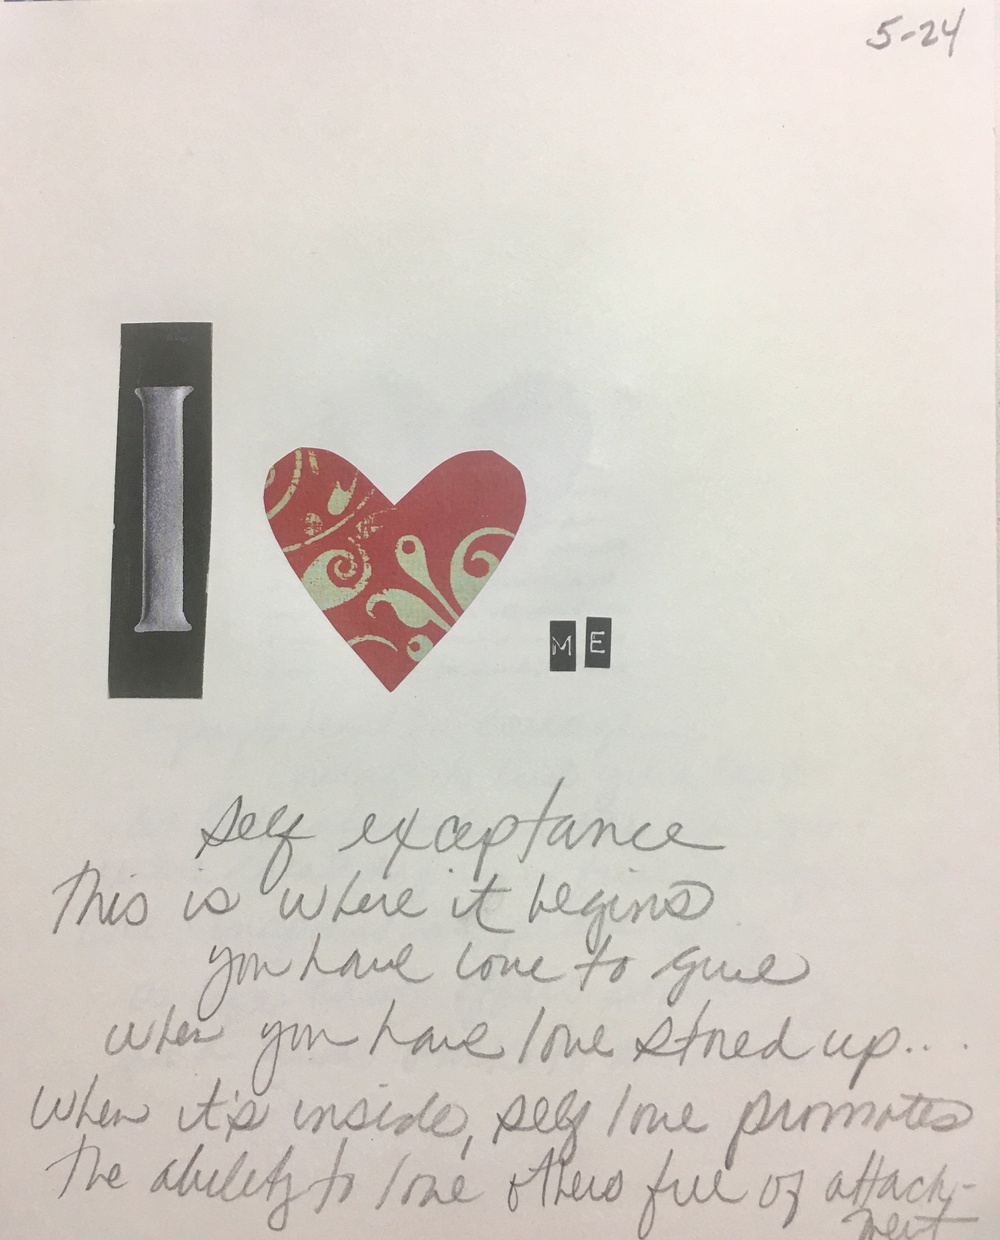 5-24
I
ME
self exceptance
this is where it begins
you have love to give
when you have love stored up....
when it's inside, self love promotes
the ability to love others free of attach-
ment